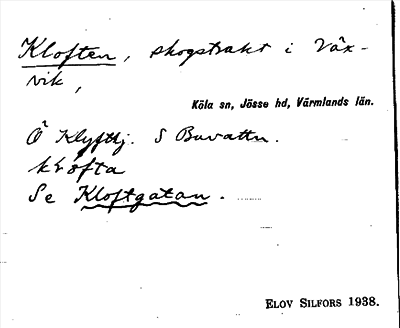 Kloften, skogstrakt i Växvik,
Köla sn, Jösse hd, Värmlands län.
Ö Klyfttj. S Buvattn.
Se Kloftgatan.
ELOV SILFORS 1938.